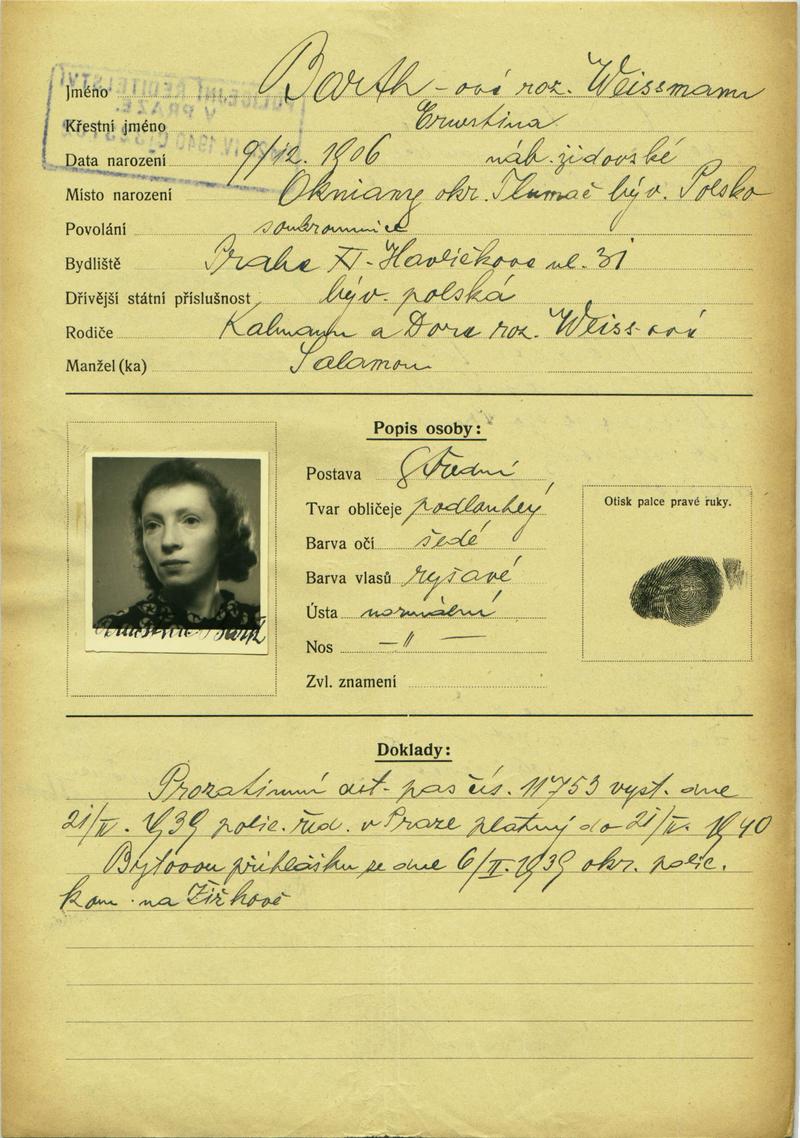 POLICEJNÍ ŘEDITELSTVÍ
V PRAZE.
IV. 1940
Jméno Barth-ová roz. Weissmann
Křestní jméno Ernestina
Data narození 9/12. 1906 náb. židovské
Místo narození Okniany okr. Tlumač býv. Polsko
Povolání soukromnice
Bydliště Praha XI-Havlíčkova ul. 31
Dřívější státní příslušnost býv. polská
Rodiče Kalmann a Dora roz. Weiss-ová
Manžel (ka) Salamon
Popis osoby:
Postava střední
Tvar obličeje podlouhlý
Barva očí šedé
Barva vlasů ryšavé
Ústa normální
Nos —"—
Zvl. znamení
Otisk palce pravé ruky.
Ernestine Barth
Doklady:
Prozatimní cest. pas čís. 11753 vyst. dne
21/IV. 1939 polic. řed. v Praze platný do 21/IV. 1940
Bytovou přihlášku ze dne 6/II. 1939 okr. polic.
kom. na Žižkově